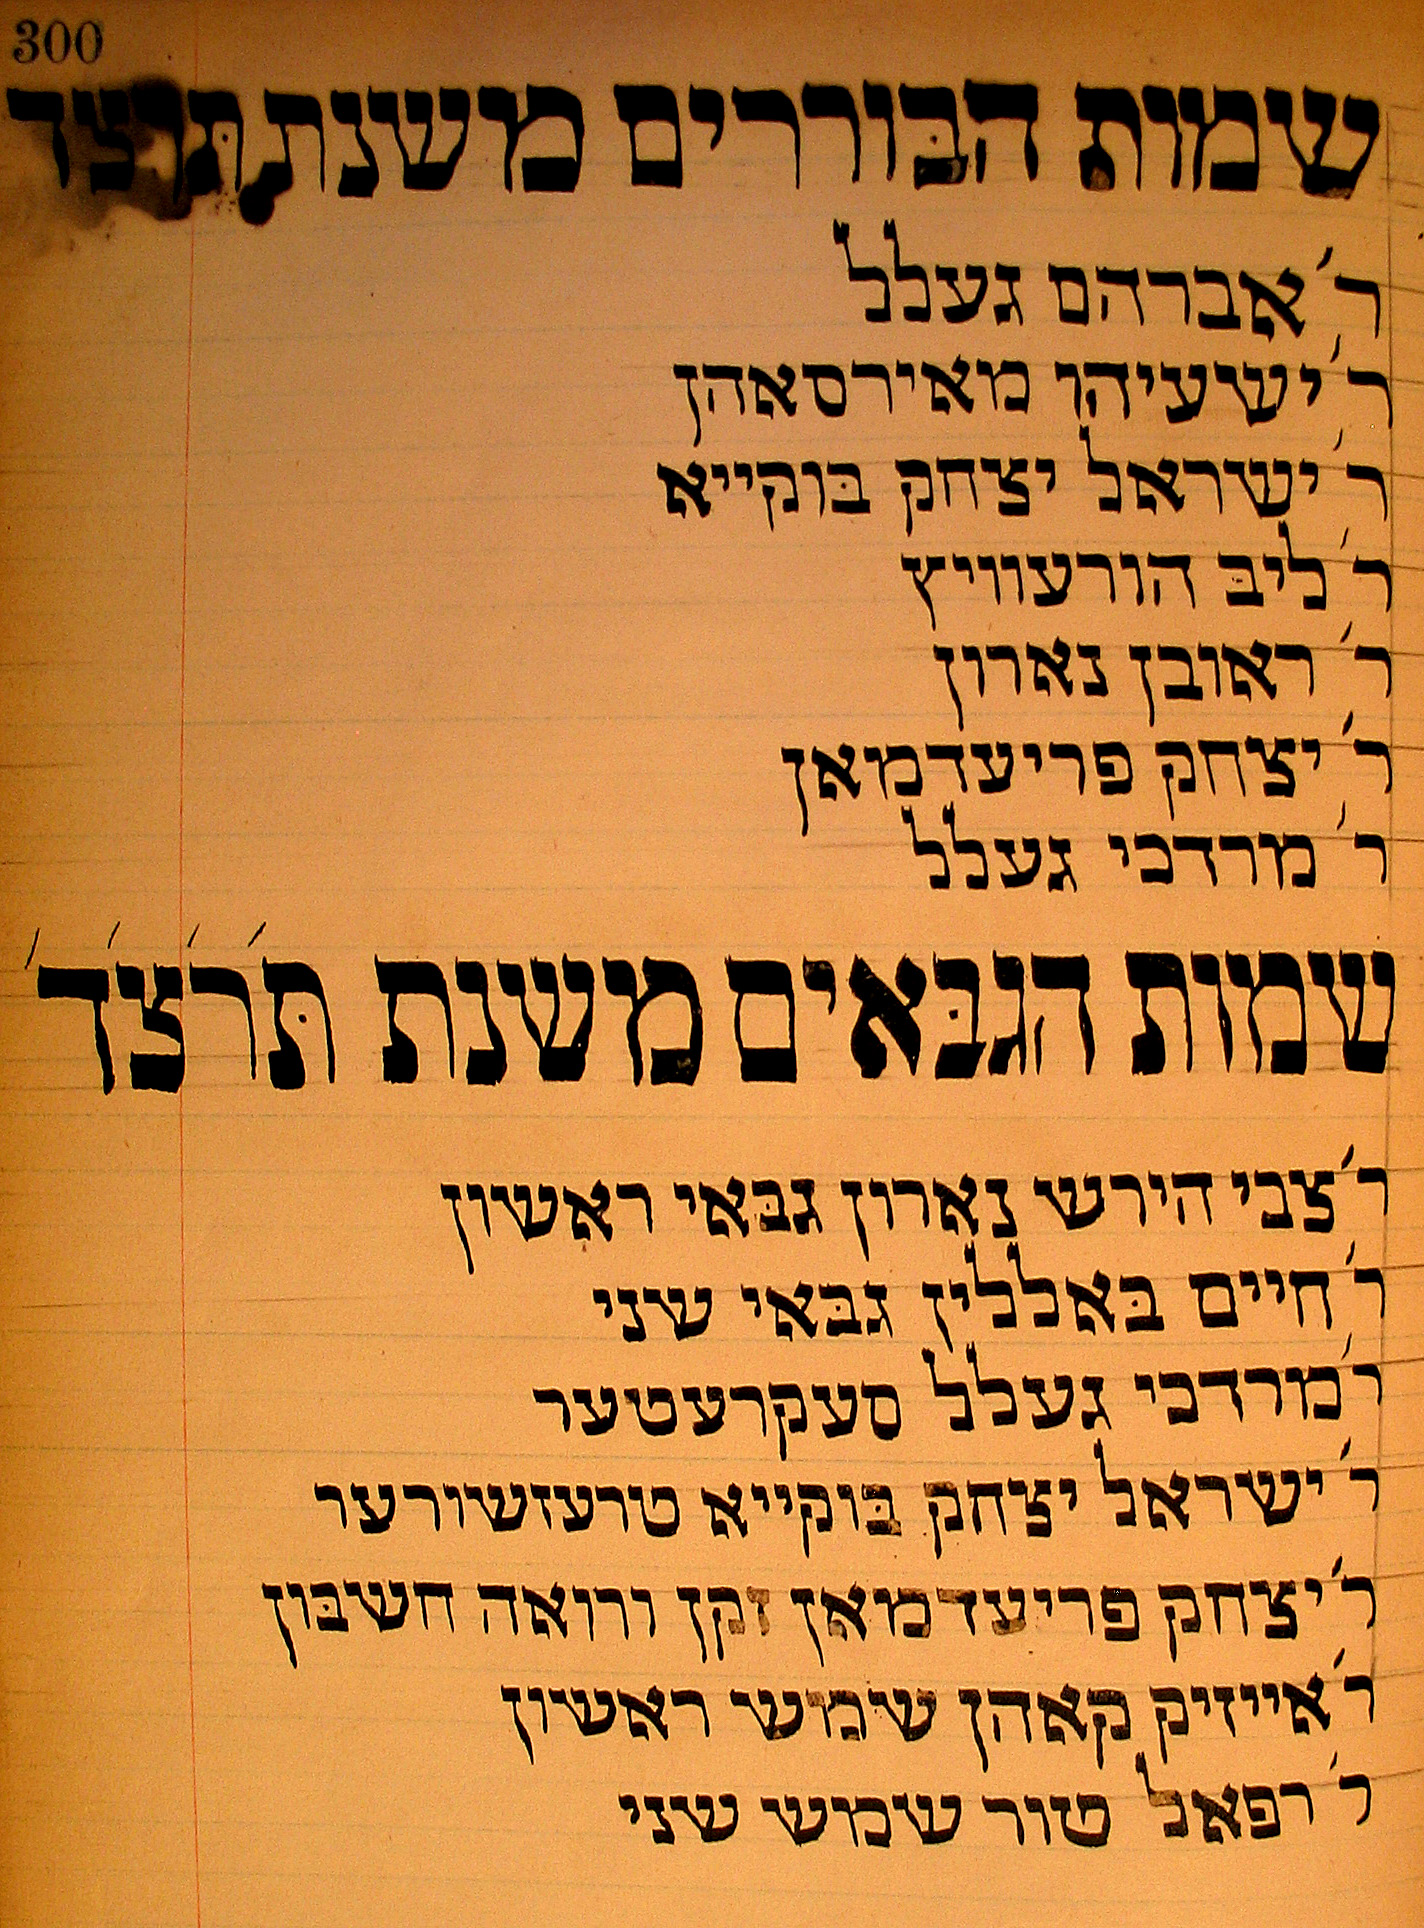 300
שמות הבּוררים משנת תּרצד
ר׳ אברהם געלל
ר׳ ישעיהו מאירסאהן
ר׳ ישראל יצחק בּוקייא
ר׳ ליבּ הורעוויץ
ר׳ ראובן נארון
ר׳ יצחק פריעדמאן
ר׳ מרדכי געלל
שמות הגבּאים משנת תּ׳ר׳צ׳ד׳
ר׳ צבי הירש נארון גבּאי ראשון
ר׳ חיים בּאללין גבּאי שני
ר׳ מורדכי געלל סעקרעטער
ר׳ ישראל יצחק בּוקייא טרעזשורער
ר׳ יצחק פריעדמאן זקן ורואה חשבּון
ר׳ אייזיק קאהן שמש ראשון
ר׳ רפאל טור שמש שני